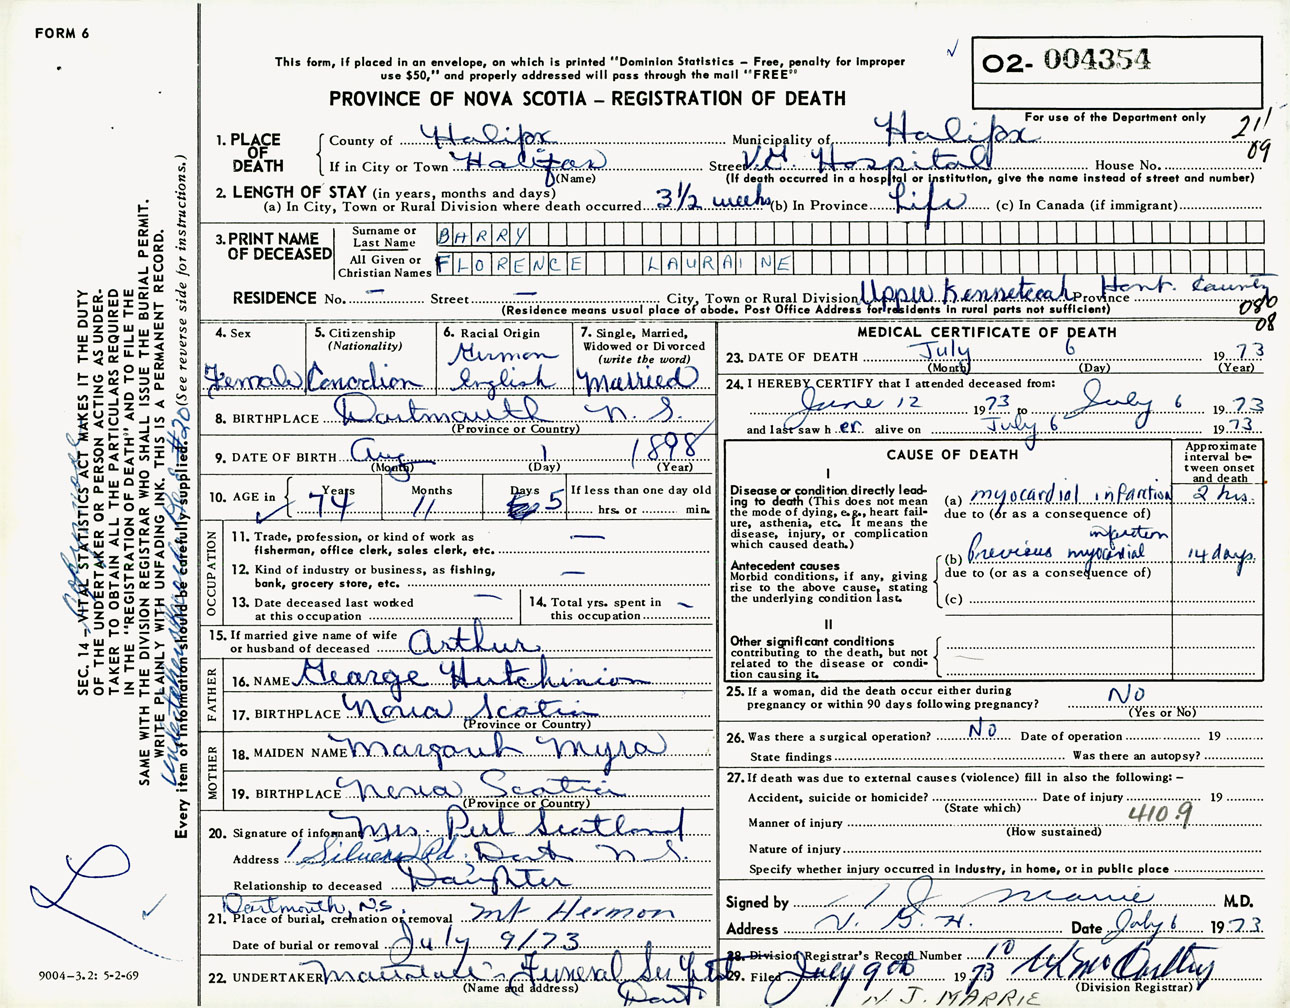 FORM 6
This form, if placed in an envelope, on which is printed "Dominion Statistics – Free, penalty for improper
use $50," and properly addressed will pass through the mail "FREE"
PROVINCE OF NOVA SCOTIA – REGISTRATION OF DEATH
02- 004354
For use of the Department only
211
09
1. PLACE OF DEATH
County of Halifax Municipality of Halifax
If in City or Town Halifax Street V.G. Hospital House No.
(Name) (If death occurred in a hospital or institution, give the name instead of street and number)
2. LENGTH OF STAY (in years, months and days)
(a) In City, Town or Rural Division where death occurred 3 1/2 weeks (b) In Province Life (c) In Canada (if immigrant)
3. PRINT NAME OF DECEASED
Surname or Last Name BARRY
All Given or Christian Names FLORENCE LAURAINE
RESIDENCE No. – Street – City, Town or Rural Division Upper Kennetcook Province Hant. County
(Residence means usual place of abode. Post Office Address for residents in rural parts not sufficient)
080
08
4. Sex
Female
5. Citizenship
(Nationality)
Canadian
6. Racial Origin
German
English
7. Single, Married,
Widowed or Divorced
(write the word)
Married
8. BIRTHPLACE Dartmouth N. S.
(Province or Country)
9. DATE OF BIRTH Aug 1 1898
(Month) (Day) (Year)
10. AGE in
Years Months Days If less than one day old
74 11 5 hrs. or min.
OCCUPATION
11. Trade, profession, or kind of work as
fisherman, office clerk, sales clerk, etc. —
12. Kind of industry or business, as fishing,
bank, grocery store, etc. —
13. Date deceased last worked
at this occupation —
14. Total yrs. spent in
this occupation –
15. If married give name of wife
or husband of deceased Arthur
FATHER
16. NAME George Hutchinson
17. BIRTHPLACE Nova Scotia
(Province or Country)
MOTHER
18. MAIDEN NAME Margaret Myra
19. BIRTHPLACE Nova Scotia
(Province or Country)
20. Signature of informant Mrs. Perl Scotland
Address 1 Silvers Rd. Dart N. S.
Relationship to deceased Daughter
Dartmouth, N.S.
21. Place of burial, cremation or removal Mt Hermon
Date of burial or removal July 9/73
22. UNDERTAKER Funeral Ser
(Name and address)
Dart
MEDICAL CERTIFICATE OF DEATH
23. DATE OF DEATH July 6 1973
(Month) (Day) (Year)
24. I HEREBY CERTIFY that I attended deceased from:
June 12 1973 to July 6 1973
and last saw h er alive on July 6 1973
CAUSE OF DEATH
Approximate
interval be-
tween onset
and death
I
Disease or condition directly lead-
ing to death (This does not mean
the mode of dying, e.g., heart fail-
ure, asthenia, etc. It means the
disease, injury, or complication
which caused death.)
(a) myocardial infarction 2 hrs.
due to (or as a consequence of)
Antecedent causes
Morbid conditions, if any, giving
rise to the above cause, stating
the underlying condition last.
infarction
(b) Previous myocardial 14 days
due to (or as a consequence of)
(c)
II
Other significant conditions
contributing to the death, but not
related to the disease or condi-
tion causing it.
25. If a woman, did the death occur either during
pregnancy or within 90 days following pregnancy? No
(Yes or No)
26. Was there a surgical operation? No Date of operation 19
State findings Was there an autopsy?
27. If death was due to external causes (violence) fill in also the following: –
Accident, suicide or homicide? Date of injury 19
(State which)
410.9
Manner of injury
(How sustained)
Nature of injury
Specify whether injury occurred in Industry, in home, or in public place
Signed by N J Marrie M.D.
Address V. G. H. Date July 6 1973
28. Division Registrar's Record Number 10
29. Filed July 9th 1973 McCarthy
(Division Registrar)
N. J. MARRIE
SEC. 14 – VITAL STATISTICS ACT MAKES IT THE DUTY
OF THE UNDERTAKER OR PERSON ACTING AS UNDER-
TAKER TO OBTAIN ALL THE PARTICULARS REQUIRED
IN THE "REGISTRATION OF DEATH" AND TO FILE THE
SAME WITH THE DIVISION REGISTRAR WHO SHALL ISSUE THE BURIAL PERMIT.
WRITE PLAINLY WITH UNFADING INK. THIS IS A PERMANENT RECORD.
Every item of information should be carefully supplied. (See reverse side for instructions.)
9004-3.2: 5-2-69